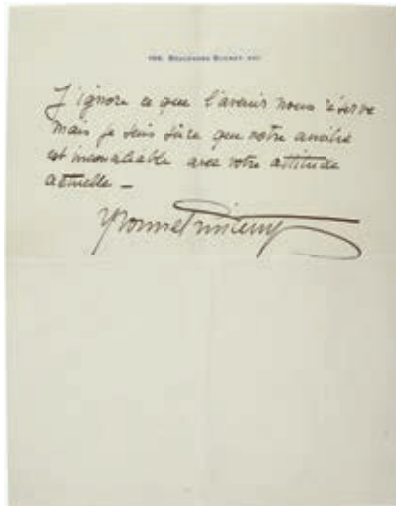 BOULEVARD SUCHET
J'ignore ce que l'avenir nous réserve
mais je suis sûre que notre
est inconciliable avec votre attitude
actuelle _
Yvonne Printemps